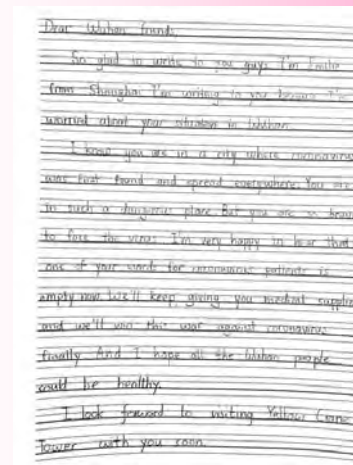 Dear Wuhan friends,
So glad to write to you guys. I'm Emilie
from Shanghai. I'm writing to you because I'm
worried about your situation in Wuhan.
I know you are in a city where coronavirus
was first found and spread everywhere. You are
in such a dangerous place. But you are so brave
to face the virus. I'm very happy to hear that
one of your wards for coronavirus patients is
empty now. We'll keep giving you medical supplies
and we'll win this war against coronavirus
finally. And I hope all the Wuhan people
could be healthy.
I look forward to visiting Yellow Crane
Tower with you soon.